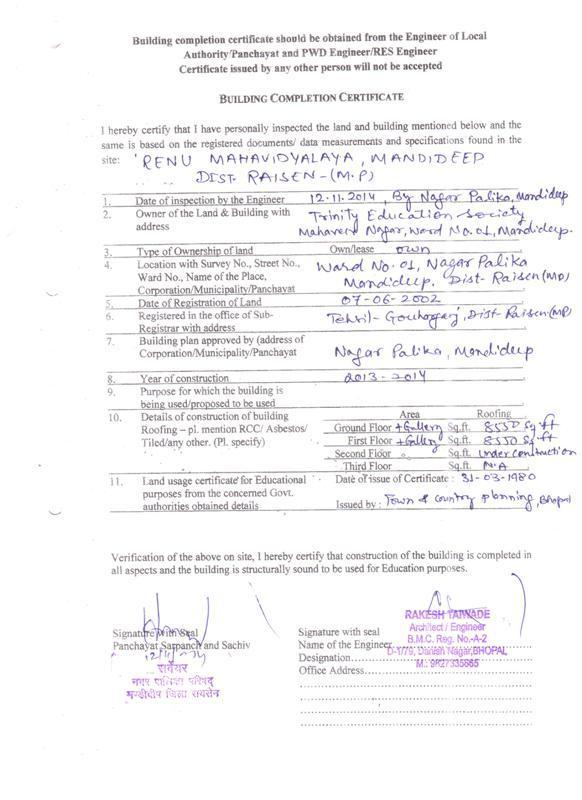 Building completion certificate should be obtained from the Engineer of Local
Authority/Panchayat and PWD Engineer/RES Engineer
Certificate issued by any other person will not be accepted
BUILDING COMPLETION CERTIFICATE
I hereby certify that I have personally inspected the land and building mentioned below and the
same is based on the registered documents/ data measurements and specifications found in the
site: RENU MAHAVIDYALAYA, MANDIDEEP
DIST. RAISEN-(M.P)
1. Date of inspection by the Engineer 12.11.2014, By Nagar Palika, Mandideep
2. Owner of the Land & Building with address Trinity Education Society
Mahaveer Nagar, Ward No. 01, Mandideep.
3. Type of Ownership of land Own/lease own
4. Location with Survey No., Street No., Ward No. 01, Nagar Palika
Ward No., Name of the Place, Mandideep. Dist- Raisen (MP)
Corporation/Municipality/Panchayat
5. Date of Registration of Land 07-06-2002
6. Registered in the office of Sub- Tehsil- Gouharganj, Dist- Raisen (MP)
Registrar with address
7. Building plan approved by (address of
Corporation/Municipality/Panchayat Nagar Palika, Mandideep
8. Year of construction 2013-2014
9. Purpose for which the building is
being used/proposed to be used
10. Details of construction of building Area Roofing
Roofing – pl. mention RCC/ Asbestos/ Ground Floor + Gallery Sq.ft. 8550 Sq ft
Tiled/any other. (Pl. specify) First Floor + Gallery Sq.ft. 8550 Sq ft
Second Floor Sq.ft. under construction
Third Floor Sq.ft. N.A
11. Land usage certificate for Educational Date of issue of Certificate : 31-03-1980
purposes from the concerned Govt.
authorities obtained details Issued by : Town & country planning, Bhopal
Verification of the above on site, I hereby certify that construction of the building is completed in
all aspects and the building is structurally sound to be used for Education purposes.
Signature With Seal
Panchayat Sarpanch and Sachiv
सर्वेयर
नगर पालिका परिषद्
मण्डीदीप जिला रायसेन
RAKESH TAIWADE
Architect / Engineer
Signature with seal B.M.C. Reg. No.-A-2
Name of the Engineer D-1/79, Danish Nagar, BHOPAL
Designation M.: 9827335665
Office Address